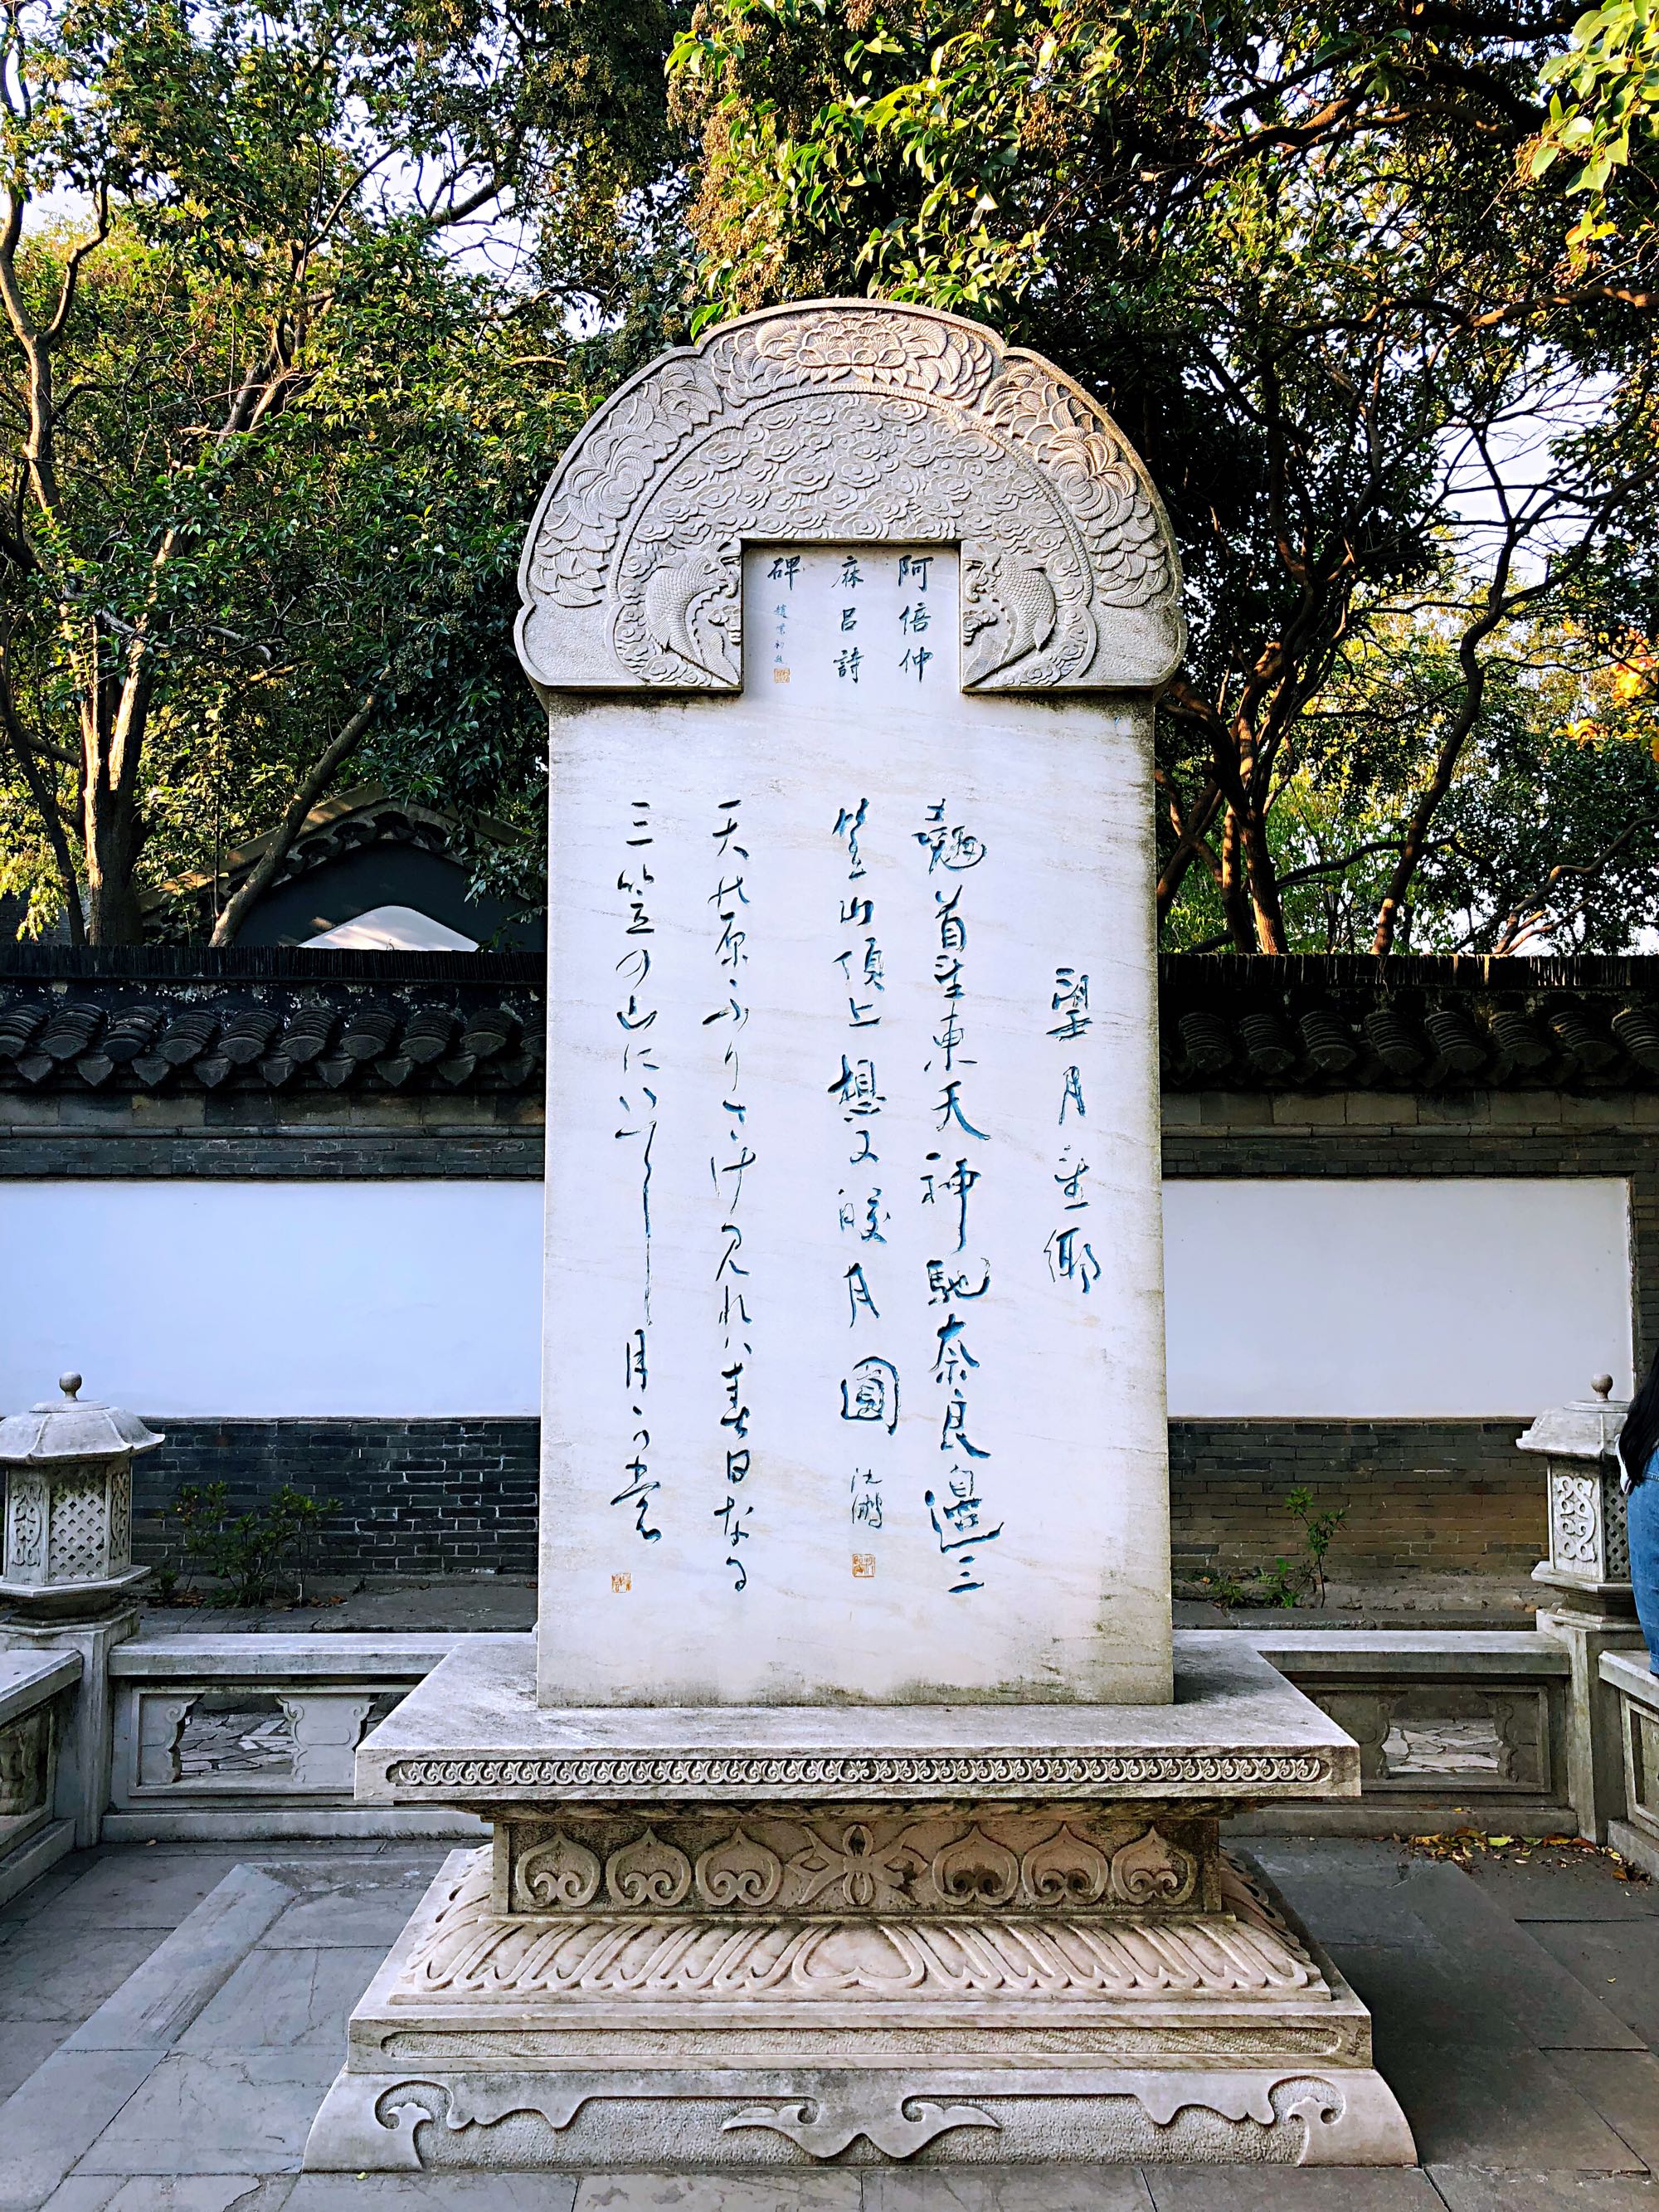 阿倍仲
麻呂詩
碑
望月望鄉
翹首望東天神馳奈良邊三
笠山頂上想又皎月圓
沈鵬
天の原ふりさけ見れハ春日なる
三笠の山にいてし月かも